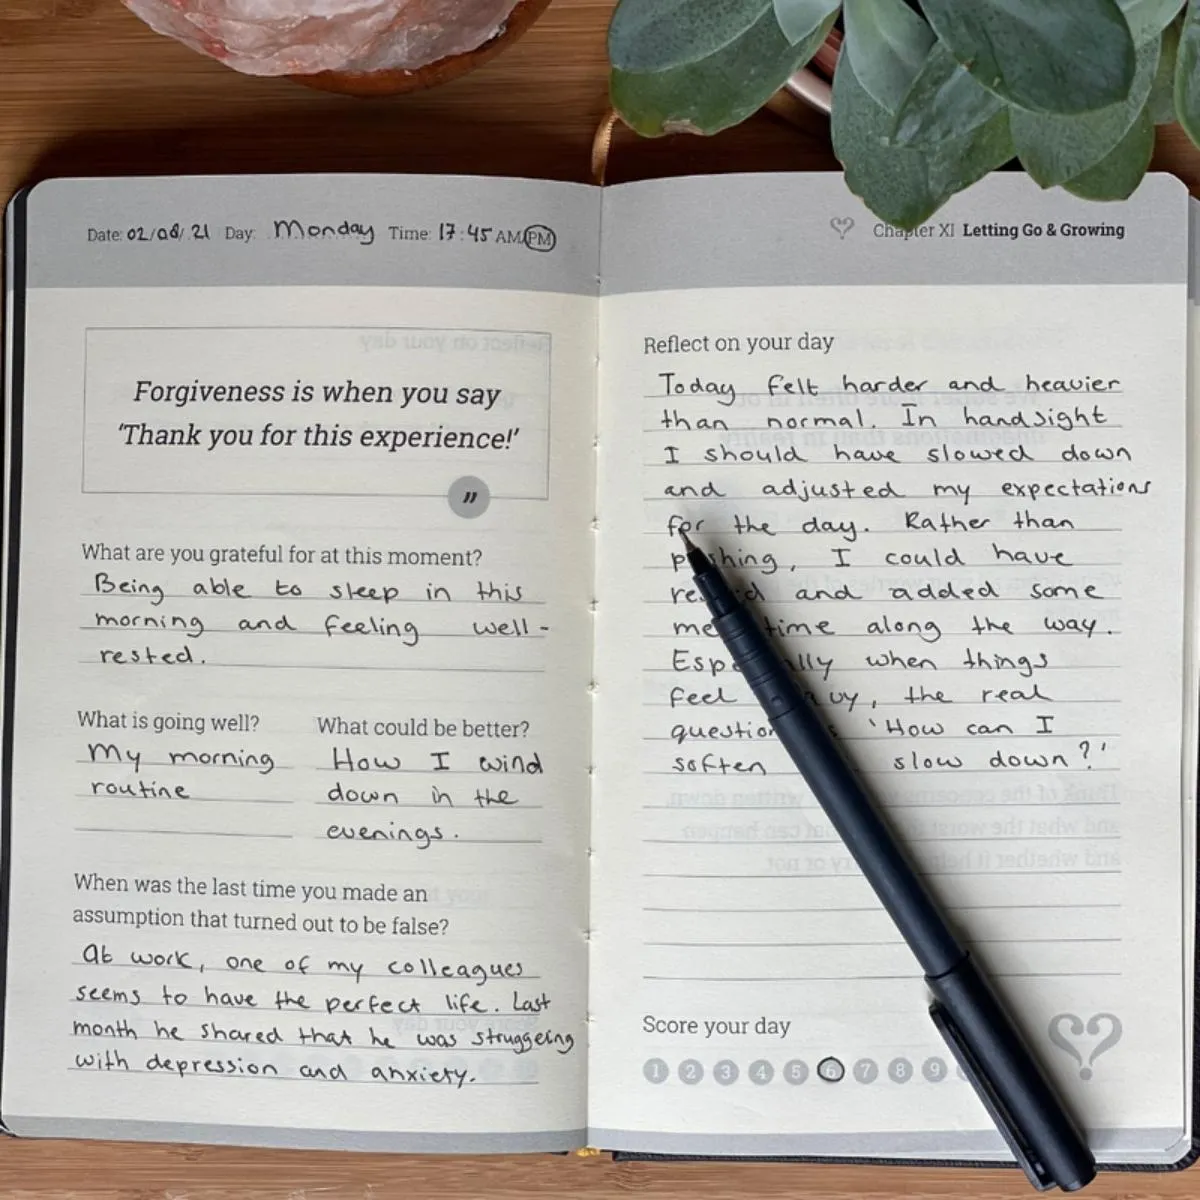 Date: 02/08/21 Day: Monday Time: 17:45 AM/PM
Forgiveness is when you say
'Thank you for this experience!'
”
What are you grateful for at this moment?
Being able to sleep in this
morning and feeling well-
rested.
What is going well?
My morning
routine
What could be better?
How I wind
down in the
evenings.
When was the last time you made an
assumption that turned out to be false?
At work, one of my colleagues
seems to have the perfect life. Last
month he shared that he was struggeing
with depression and anxiety.
Chapter XI Letting Go & Growing
Reflect on your day
Today felt harder and heavier
than normal. In handsight
I should have slowed down
and adjusted my expectations
for the day. Rather than
pushing, I could have
and added some
me time along the way.
Especially when things
feel heavy, the real
question 'How can I
soften slow down?'
Score your day
1 2 3 4 5 6 7 8 9